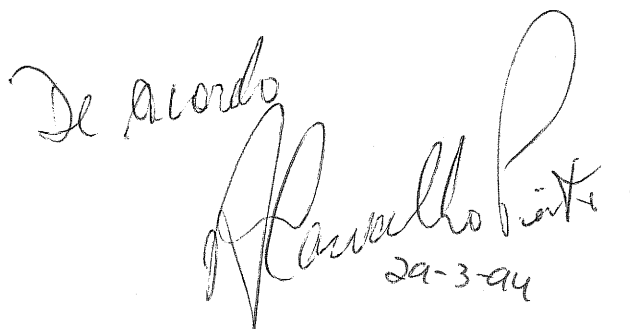 De acordo
ACarvalho Pinto
29-3-94